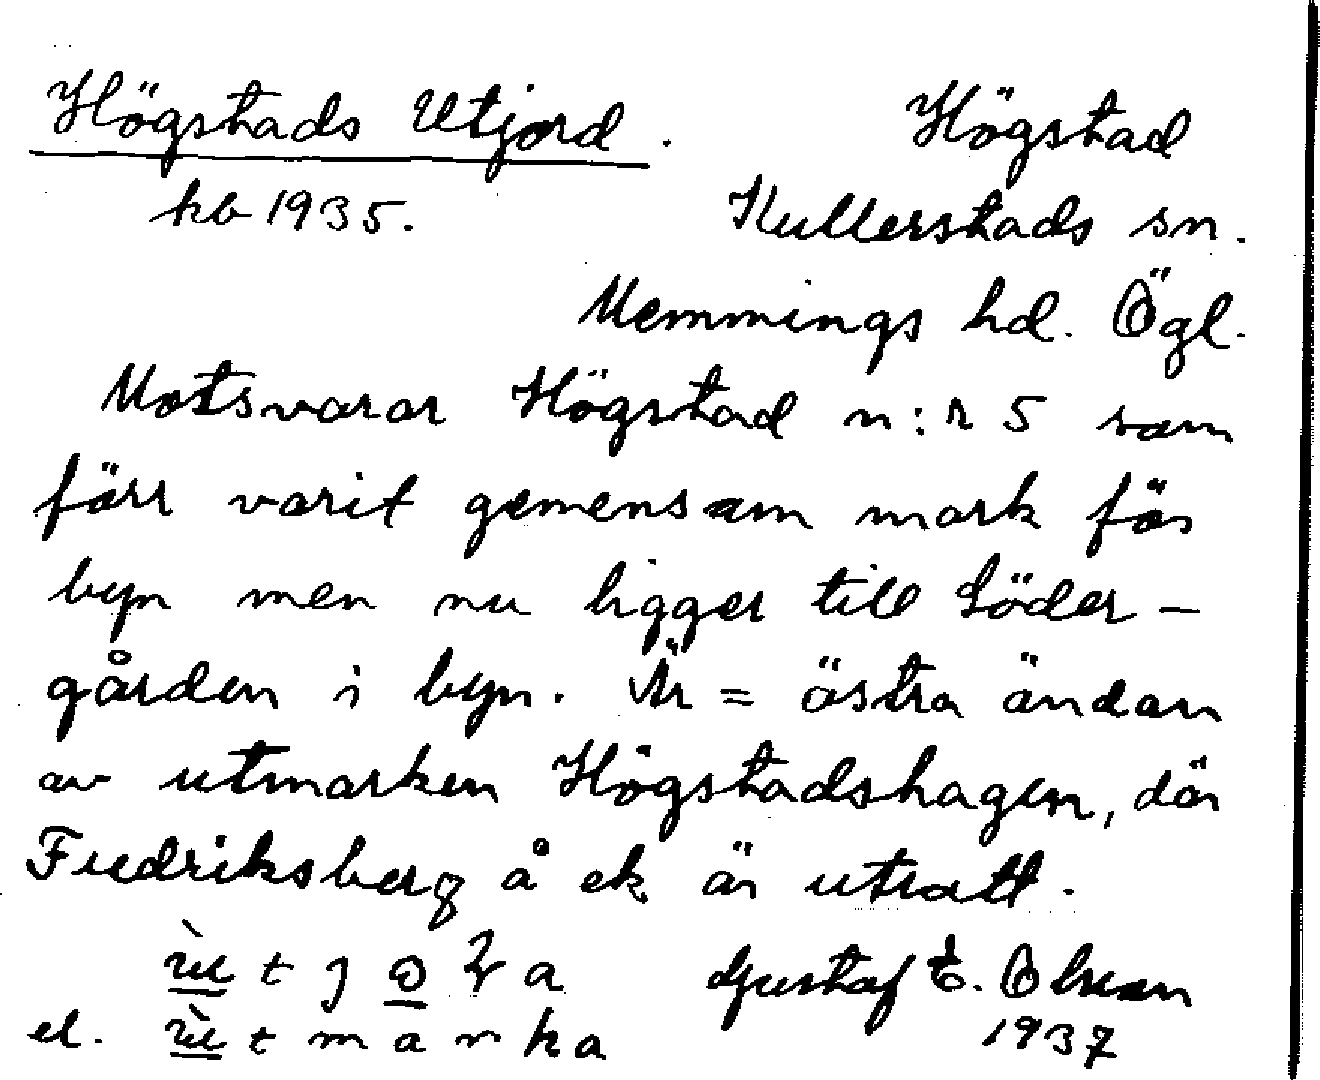 Högstads Utjord. Högstad
kb 1935. Kullerstads sn.
Memmings hd. Ögl.
Motsvarar Högstad n:r 5 som
förr varit gemensam mark för
byn men nu ligger till Söder-
gården i byn. Är = östra ändan
av utmarken Högstadshagen, där
Fredriksberg å ek är utsatt.
Gustaf E. Olsson
el. 1937